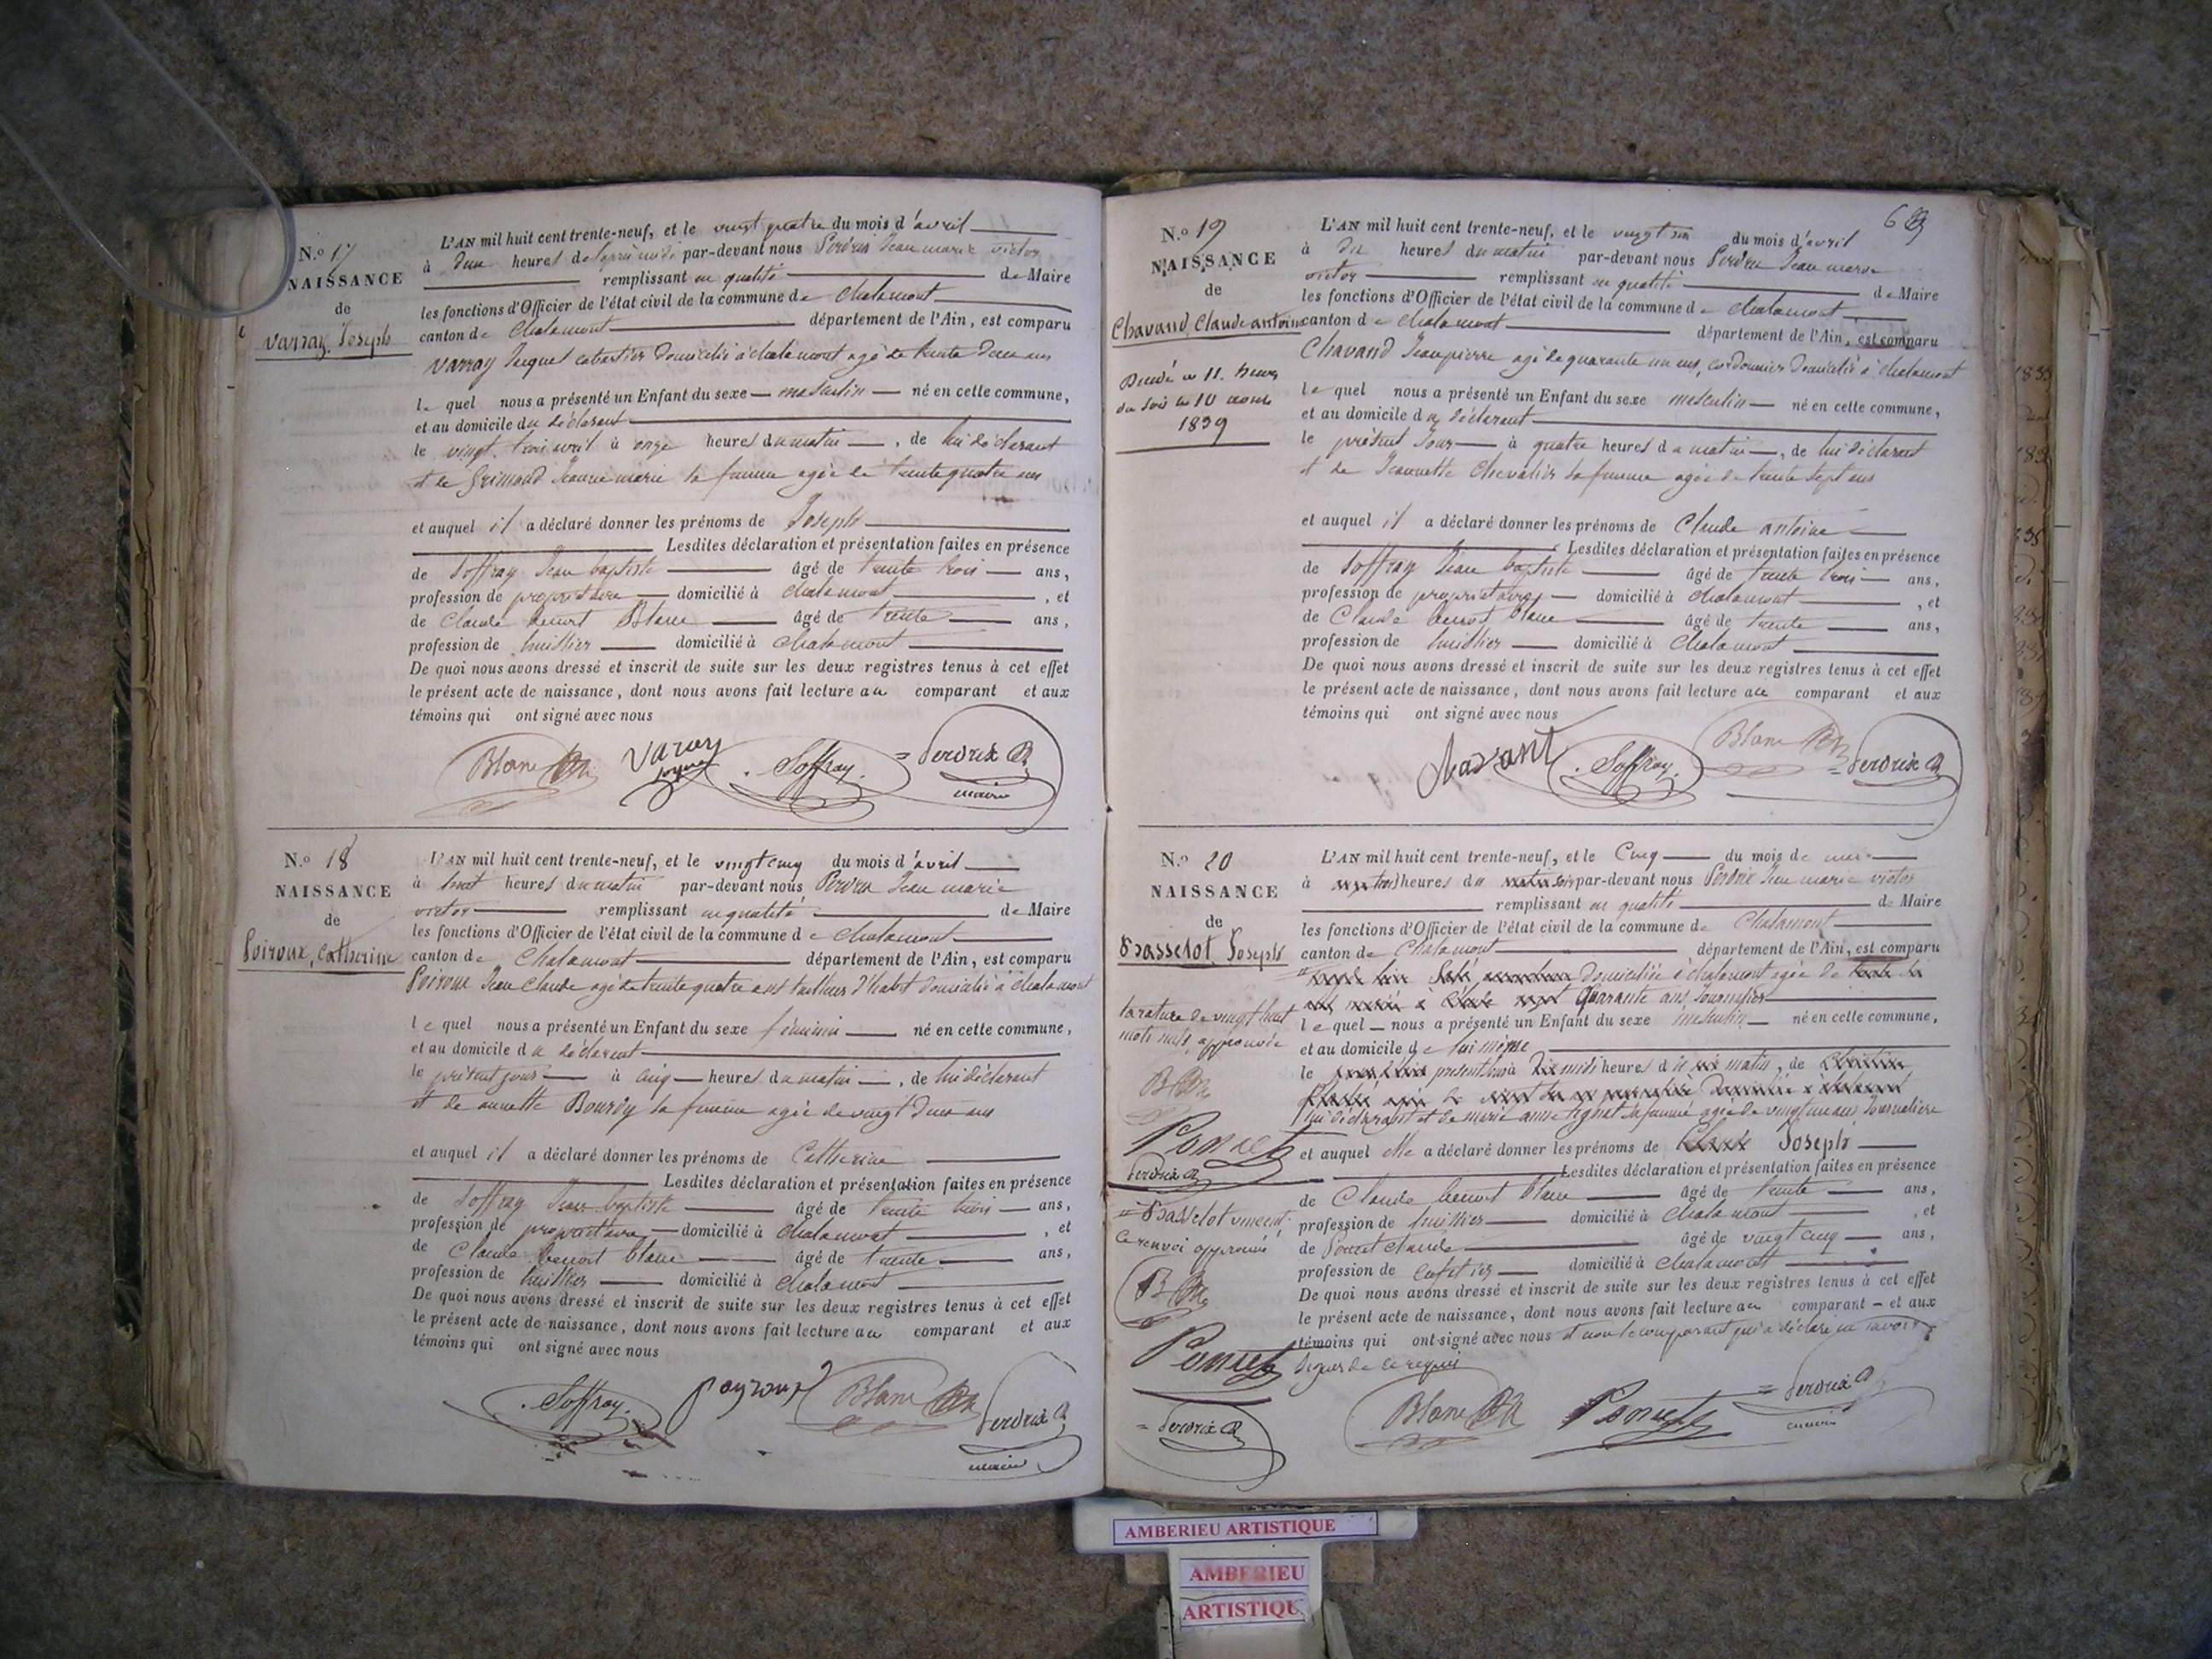 N.º 17
NAISSANCE
de
Varray, Joseph
L'AN mil huit cent trente-neuf, et le vingt quatre du mois d'avril
à Deux heures de l'après midi par-devant nous Perdrix Jean marie victor
remplissant en qualité de Maire
les fonctions d'Officier de l'état civil de la commune de Chalamont
canton de Chalamont département de l'Ain, est comparu
Varray Jacques cabartier domicilié à chalamont agé de trente Deux ans
le quel nous a présenté un Enfant du sexe masculin né en cette commune,
et au domicile du déclarant
le vingt trois avril à onze heures du matin, de lui déclarant
et de Grimaud Jeanne marie sa femme agée de trente quatre ans
et auquel il a déclaré donner les prénoms de Joseph
Lesdites déclaration et présentation faites en présence
de Soffray Jean baptiste âgé de trente trois ans,
profession de propriétaire domicilié à chalamont, et
de Claude benoit Blanc âgé de trente ans,
profession de huissier domicilié à chalamont
De quoi nous avons dressé et inscrit de suite sur les deux registres tenus à cet effet
le présent acte de naissance, dont nous avons fait lecture au comparant et aux
témoins qui ont signé avec nous
Blanc Varay Soffray Perdrix
maire
N.º 18
NAISSANCE
de
Poiroux, Catherine
L'AN mil huit cent trente-neuf, et le vingt cinq du mois d'avril
à huit heures du matin par-devant nous Perdrix Jean marie
victor remplissant en qualité de Maire
les fonctions d'Officier de l'état civil de la commune de chalamont
canton de Chalamont département de l'Ain, est comparu
Poiroux Jean Claude agé de trente quatre ans tailleur d'habit domicilié à chalamont
le quel nous a présenté un Enfant du sexe féminin né en cette commune,
et au domicile du déclarant
le présent jour à cinq heures du matin, de lui déclarant
et de annette Bourdy sa femme agée de vingt Deux ans
et auquel il a déclaré donner les prénoms de Catherine
Lesdites déclaration et présentation faites en présence
de Soffray Jean baptiste âgé de trente trois ans,
profession de propriétaire domicilié à chalamont, et
de Claude benoit blanc âgé de trente ans,
profession de huissier domicilié à chalamont
De quoi nous avons dressé et inscrit de suite sur les deux registres tenus à cet effet
le présent acte de naissance, dont nous avons fait lecture au comparant et aux
témoins qui ont signé avec nous
Soffray Blanc Perdrix
maire
N.º 19
NAISSANCE
de
Chavand, Claude antoine
Décédé à 11 heures
du soir le 10
1839
L'AN mil huit cent trente-neuf, et le vingt six du mois d'avril
à Dix heures du matin par-devant nous Perdrix Jean marie
victor remplissant en qualité de Maire
les fonctions d'Officier de l'état civil de la commune de chalamont
canton de chalamont département de l'Ain, est comparu
Chavand Jean pierre agé de quarante un ans, cordonnier domicilié à chalamont
le quel nous a présenté un Enfant du sexe masculin né en cette commune,
et au domicile du déclarant
le présent Jour à quatre heures du matin, de lui déclarant
et de Jeannette Chevalier sa femme agée de trente sept ans
et auquel il a déclaré donner les prénoms de Claude antoine
Lesdites déclaration et présentation faites en présence
de Soffray Jean baptiste âgé de trente trois ans,
profession de propriétaire domicilié à chalamont, et
de Claude benoit blanc âgé de trente ans,
profession de huissier domicilié à Chalamont
De quoi nous avons dressé et inscrit de suite sur les deux registres tenus à cet effet
le présent acte de naissance, dont nous avons fait lecture au comparant et aux
témoins qui ont signé avec nous
Chavant Soffray Blanc Perdrix
N.º 20
NAISSANCE
de
Basselot, Joseph
la rature de vingt huit
mots nuls approuvée
Poncet
Perdrix
Basselot vincent
Ce renvoi approuvé
Poncet
Perdrix
L'AN mil huit cent trente-neuf, et le Cinq du mois de mai
à trois heures du soir par-devant nous Perdrix Jean marie victor
remplissant en qualité de Maire
les fonctions d'Officier de l'état civil de la commune de Chalamont
canton de Chalamont département de l'Ain, est comparu
domiciliée à chalamont agée de
Quarante ans Journalier
le quel nous a présenté un Enfant du sexe masculin né en cette commune,
et au domicile de lui même
le présent à midi heures du matin, de
lui déclarant et de marie anne sa femme agée de vingt un ans Journalière
et auquel elle a déclaré donner les prénoms de Joseph
Lesdites déclaration et présentation faites en présence
de Claude benoit blanc âgé de trente ans,
profession de huissier domicilié à chalamont, et
de Poncet claude âgé de vingt cinq ans,
profession de domicilié à chalamont
De quoi nous avons dressé et inscrit de suite sur les deux registres tenus à cet effet
le présent acte de naissance, dont nous avons fait lecture au comparant et aux
témoins qui ont signé avec nous et non le comparant qui a déclaré ne savoir
signer de ce requis
Blanc Poncet Perdrix
maire
AMBERIEU ARTISTIQUE
AMBERIEU
ARTISTIQU